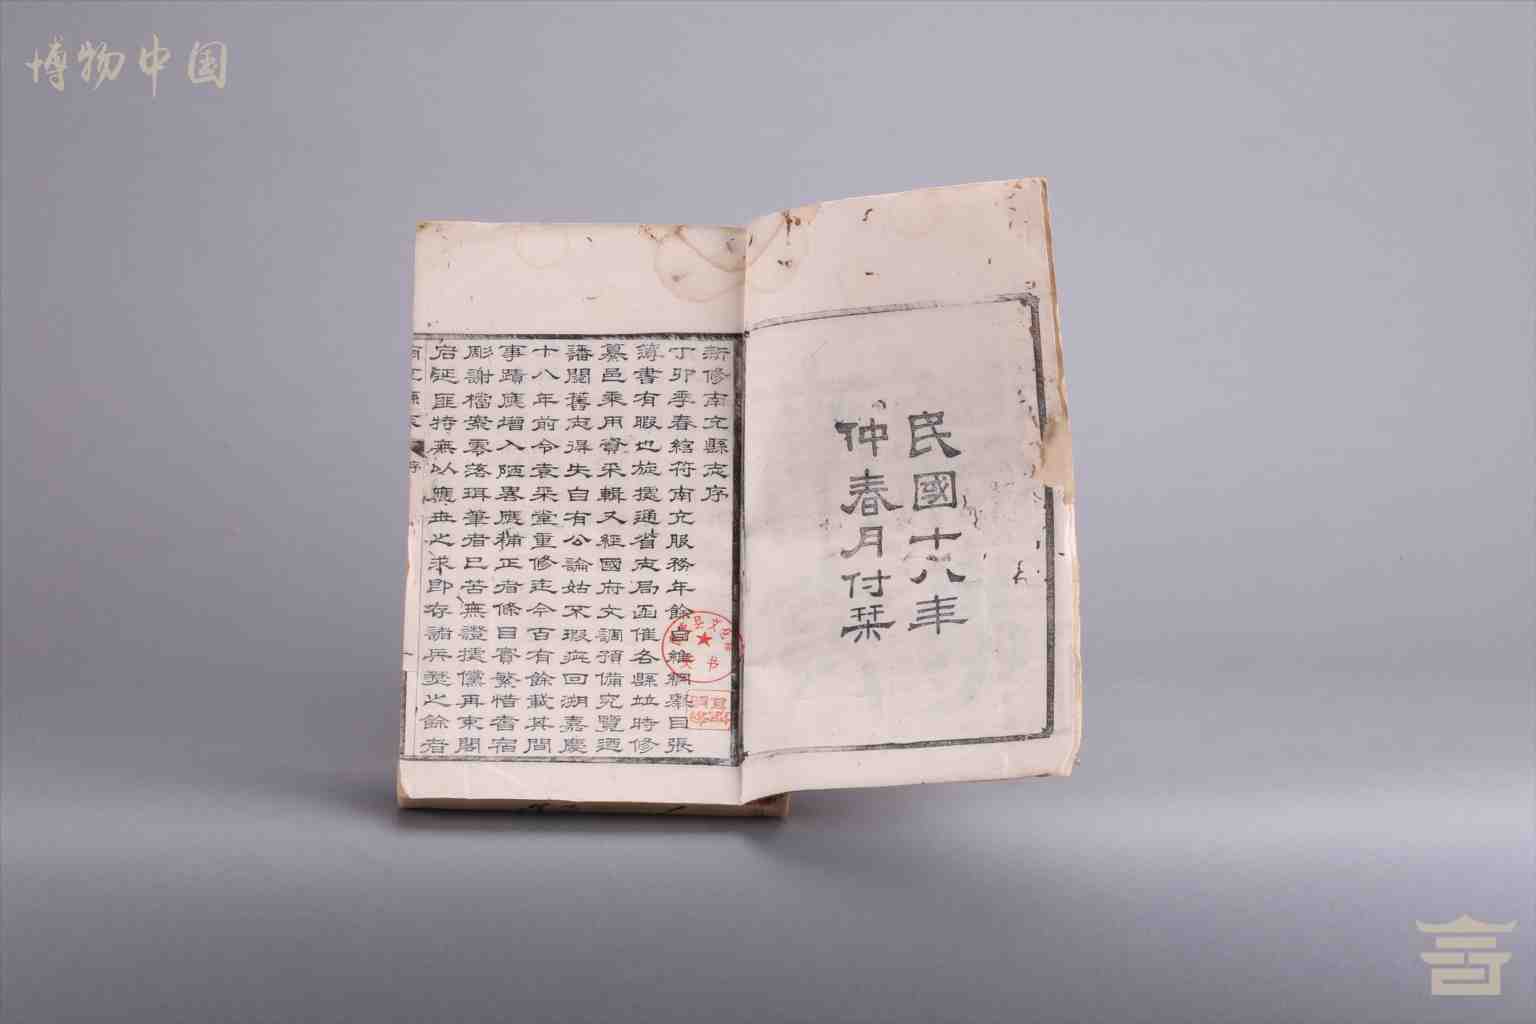 博物中国
民國十八年
仲春月付栞
新修南充縣志序
丁卯季春綰符南充服務年餘自維綱舉目張
簿書有暇也旋據通省志局函催各縣竝時修
纂邑乘用資采輯又經國府文調預備究覽迺
譒閱舊志得失自有公論姑不瑕疵回溯嘉慶
十八年前令袁采堂重修迄今百有餘載其間
事蹟應增入陋畧應補正者條目實繁惜耆宿
彫謝檔案零落珥筆者已苦無證據儻再束閣
宕延匪特無以應世之求即存諸兵燹之餘者